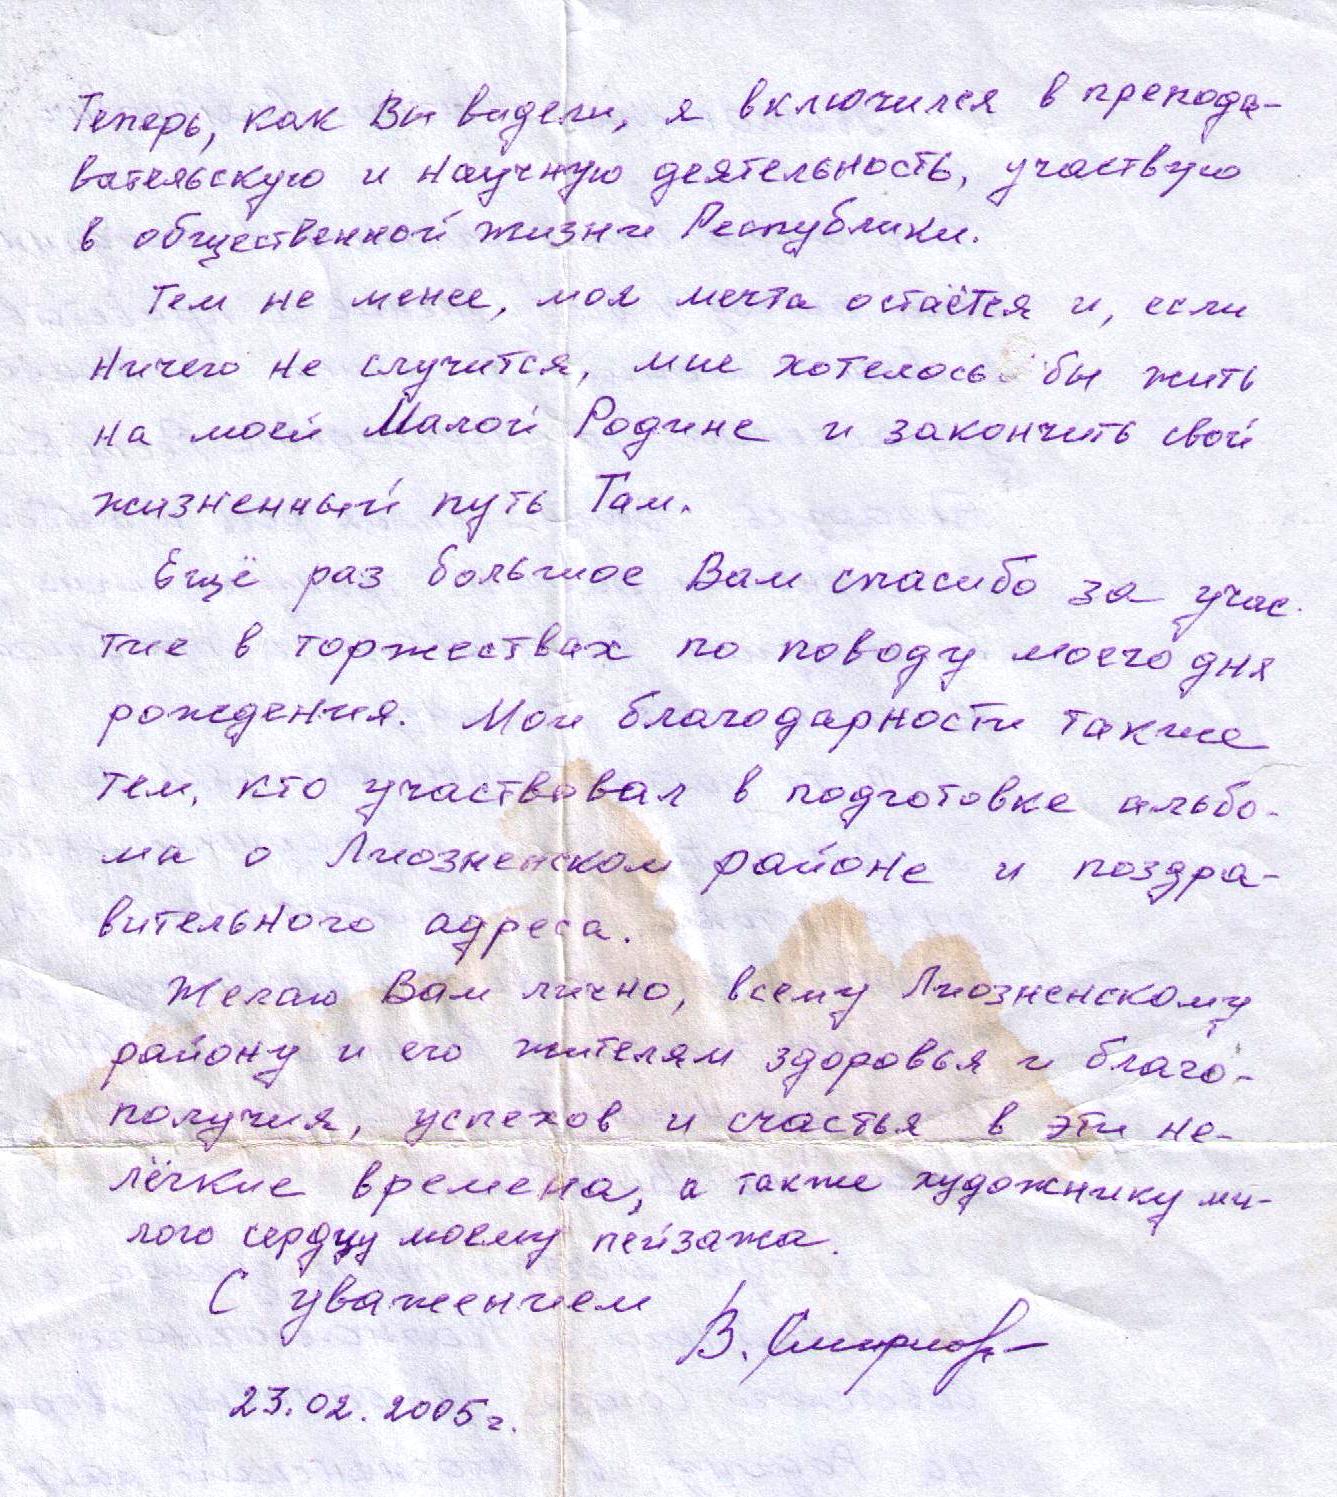 Теперь, как Вы видели, я включился в препода-
вательскую и научную деятельность, участвую
в общественной жизни Республики.
Тем не менее, моя мечта остаётся и, если
ничего не случится, мне хотелось бы жить
на моей Малой Родине и закончить свой
жизненный путь Там.
Ещё раз большое Вам спасибо за учас-
тие в торжествах по поводу моего дня
рождения. Мои благодарности также
тем, кто участвовал в подготовке альбо-
ма о Лиозненском районе и поздра-
вительного адреса.
Желаю Вам лично, всему Лиозненскому
району и его жителям здоровья и благо-
получия, успехов и счастья в эти не-
лёгкие времена, а также художнику ми-
лого сердцу моему пейзажа.
С уважением В. Смирнов
23.02.2005г.